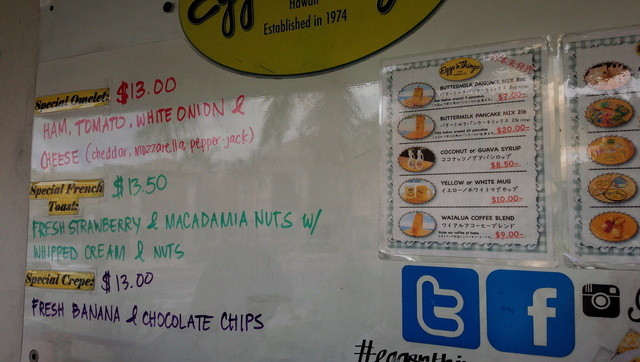 Egg
Hawaii
Established in 1974
Special Omelet: $13.00
HAM, TOMATO, WHITE ONION &
CHEESE (cheddar, mozzarella, pepper-jack)
Special French
Toast: $13.50
FRESH STRAWBERRY & MACADAMIA NUTS W/
WHIPPED CREAM & NUTS
Special Crepe: $13.00
FRESH BANANA & CHOCOLATE CHIPS
Eggs'n Things
BUTTERMILK PANCAKE MIX 8oz
バターミルクパンケーキミックス
$7.00~
BUTTERMILK PANCAKE MIX 2lb
バターミルクパンケーキミックス 2lb
$20.00~
COCONUT or GUAVA SYRUP
ココナッツ／グアバシロップ
$8.50~
YELLOW or WHITE MUG
イエロー／ホワイトマグカップ
$10.00~
WAIALUA COFFEE BLEND
ワイアルアコーヒーブレンド
$9.00~
t f
#eggsnthin